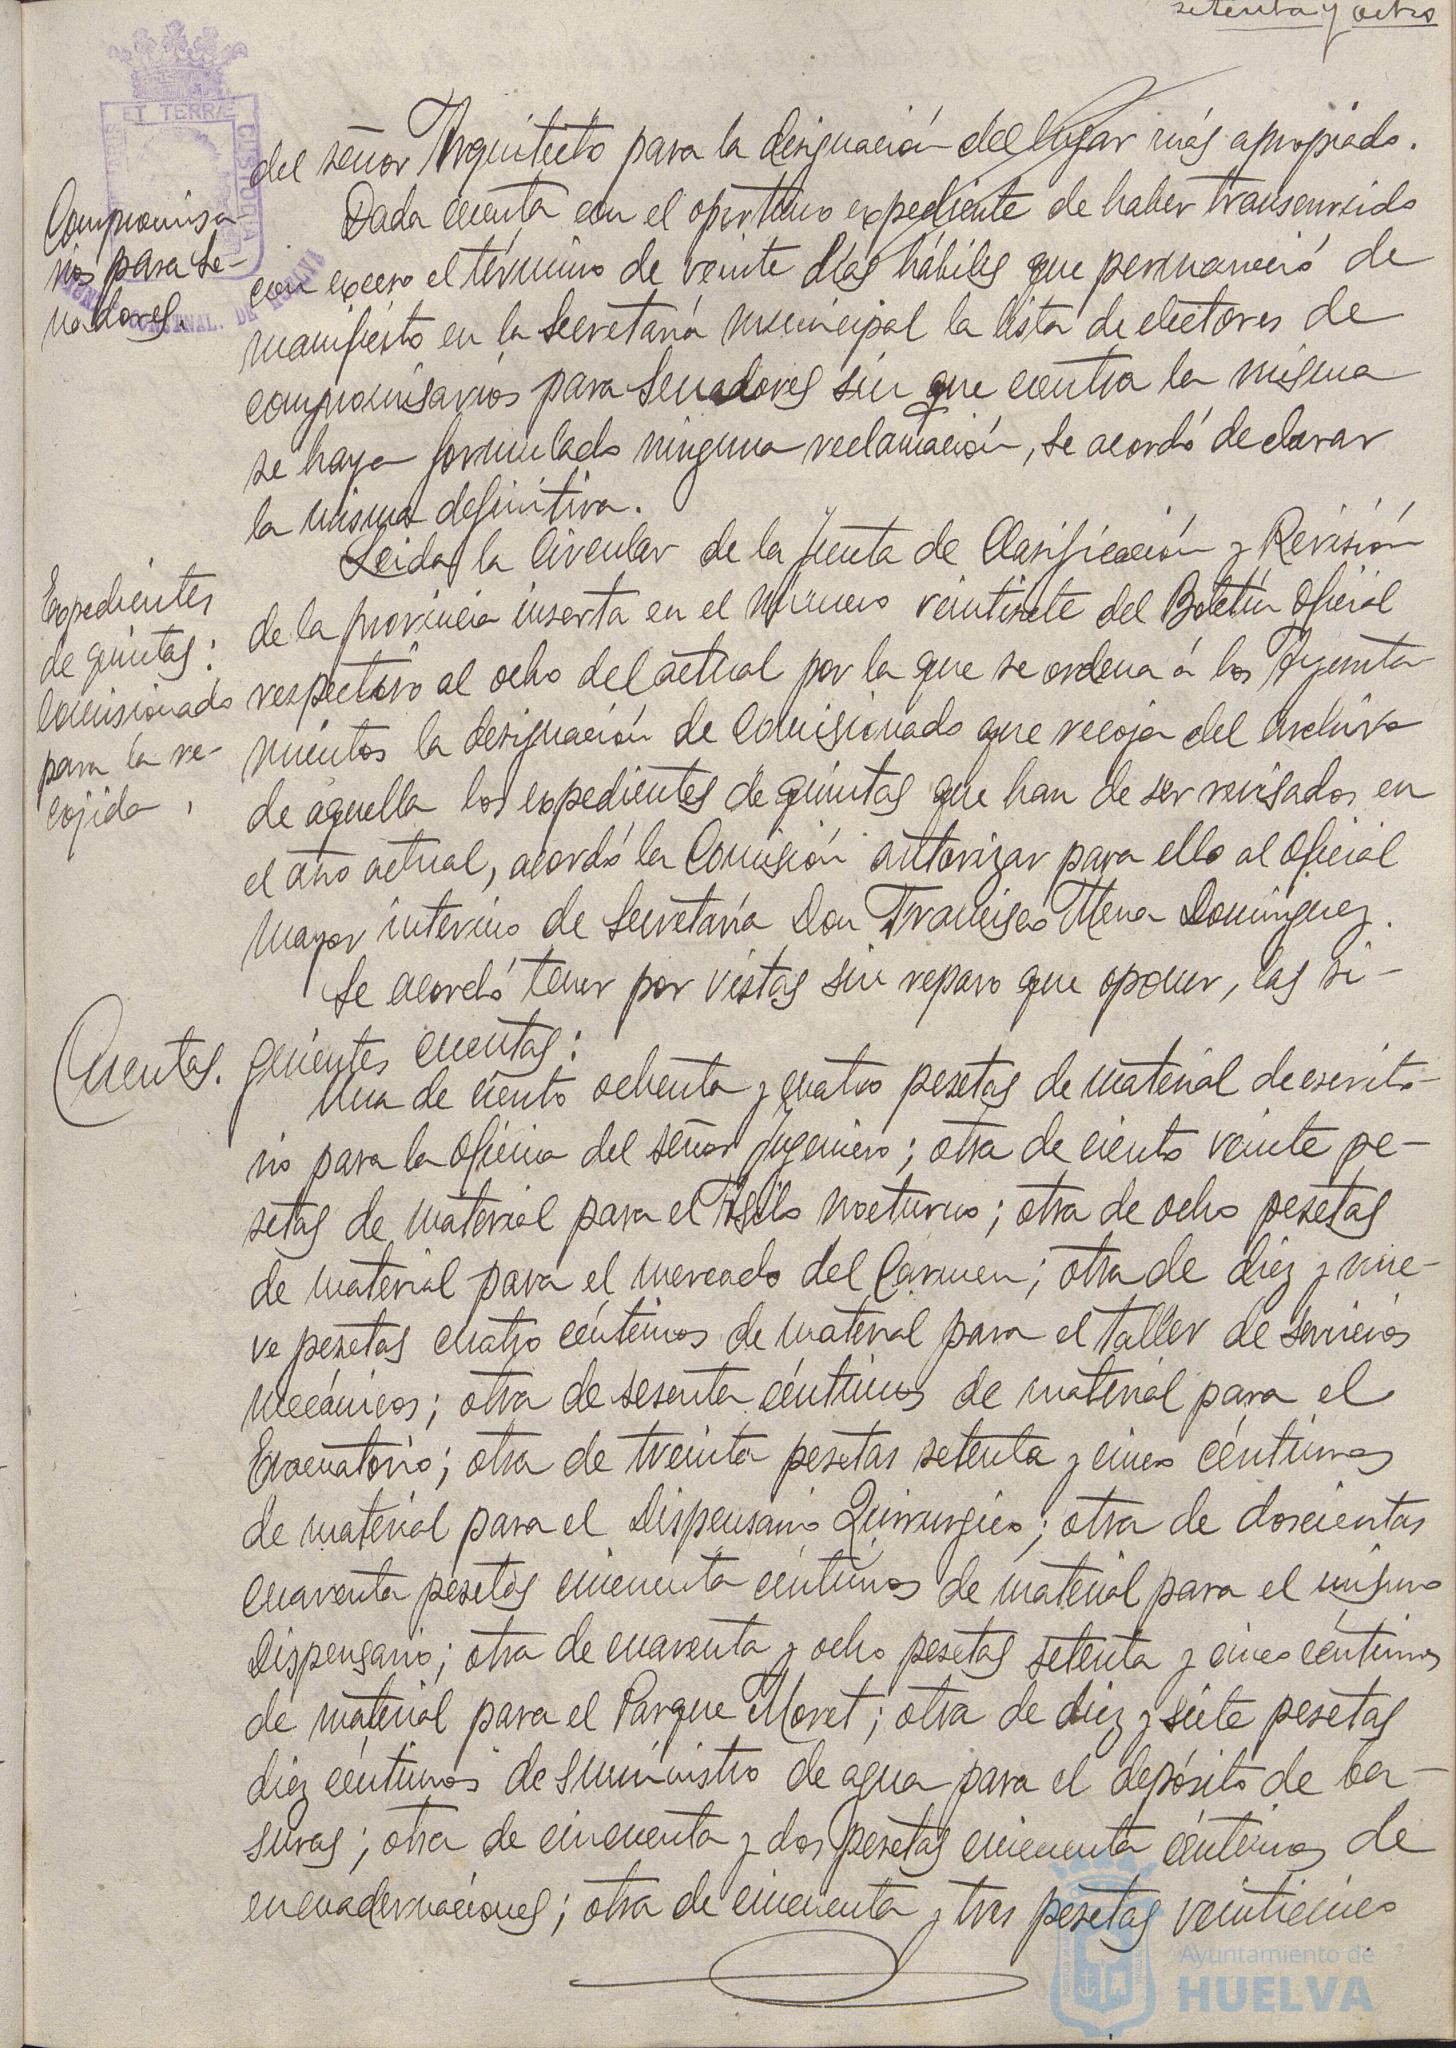 setenta y ocho
del señor Arquitecto para la designación del lugar más apropiado.
Compromisa
rios para Se-
nadores.
Dada cuenta con el oportuno expediente de haber transcurrido
con exceso el término de veinte días hábiles que permaneció de
manifiesto en la Secretaría municipal la lista de electores de
compromisarios para Senadores sin que contra la misma
se haya formulado ninguna reclamación, se acordó declarar
la misma definitiva.
Expedientes
de quintas:
Comisionado
para la re-
cojida.
Leida la Circular de la Junta de Clasificación y Revisión
de la provincia inserta en el número veintisiete del Boletín Oficial
respectivo al ocho del actual por la que se ordena á los Ayunta
mientos la designación de Comisionado que recoja del archivo
de aquella los expedientes de quintas que han de ser revisados en
el año actual, acordó la Comisión autorizar para ello al oficial
mayor interino de Secretaría Don Francisco Mena Domínguez.
Se acordó tener por vistas sin reparo que oponer, las si-
Cuentas.
guientes cuentas:
Una de ciento ochenta y cuatro pesetas de material de escrito-
rio para la oficina del señor Ingeniero; otra de ciento veinte pe-
setas de material para el Asilo nocturno; otra de ocho pesetas
de material para el mercado del Carmen; otra de diez y nue-
ve pesetas cuatro céntimos de material para el taller de servicios
mecánicos; otra de sesenta céntimos de material para el
Evacuatorio; otra de treinta pesetas setenta y cinco céntimos
de material para el Dispensario Quirurgico; otra de doscientas
cuarenta pesetas cincuenta céntimos de material para el mismo
Dispensario; otra de cuarenta y ocho pesetas setenta y cinco céntimos
de material para el Parque Moret; otra de diez y siete pesetas
diez céntimos de suministro de agua para el depósito de ba-
suras; otra de cincuenta y dos pesetas cincuenta céntimos de
encuadernaciones; otra de cincuenta y tres pesetas veinticinco
ET TERRÆ
CUSTODIA
DE HUELVA
Ayuntamiento de
HUELVA